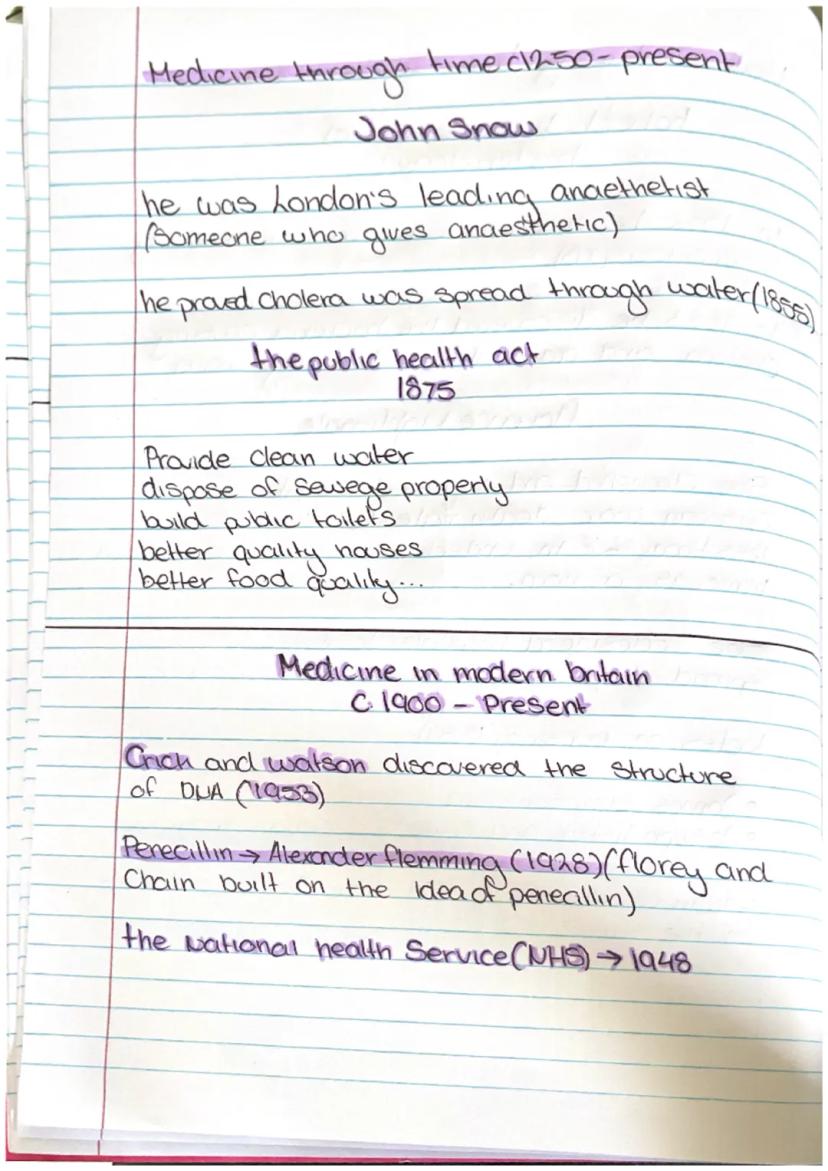 Medicine through time c1250 - present
John Snow
he was London's leading anaethetist
(someone who gives anaesthetic)
he proved cholera was spread through water (1855)
the public health act
1875
Provide clean water
dispose of sewege properly
build public toilets
better quality houses
better food quality...
Medicine in modern britain
C. 1900 - Present
Crick and watson discovered the structure
of DNA (1953)
Penecillin → Alexander flemming (1928) (florey and
Chain built on the idea of penecillin)
the National health Service (NHS) → 1948